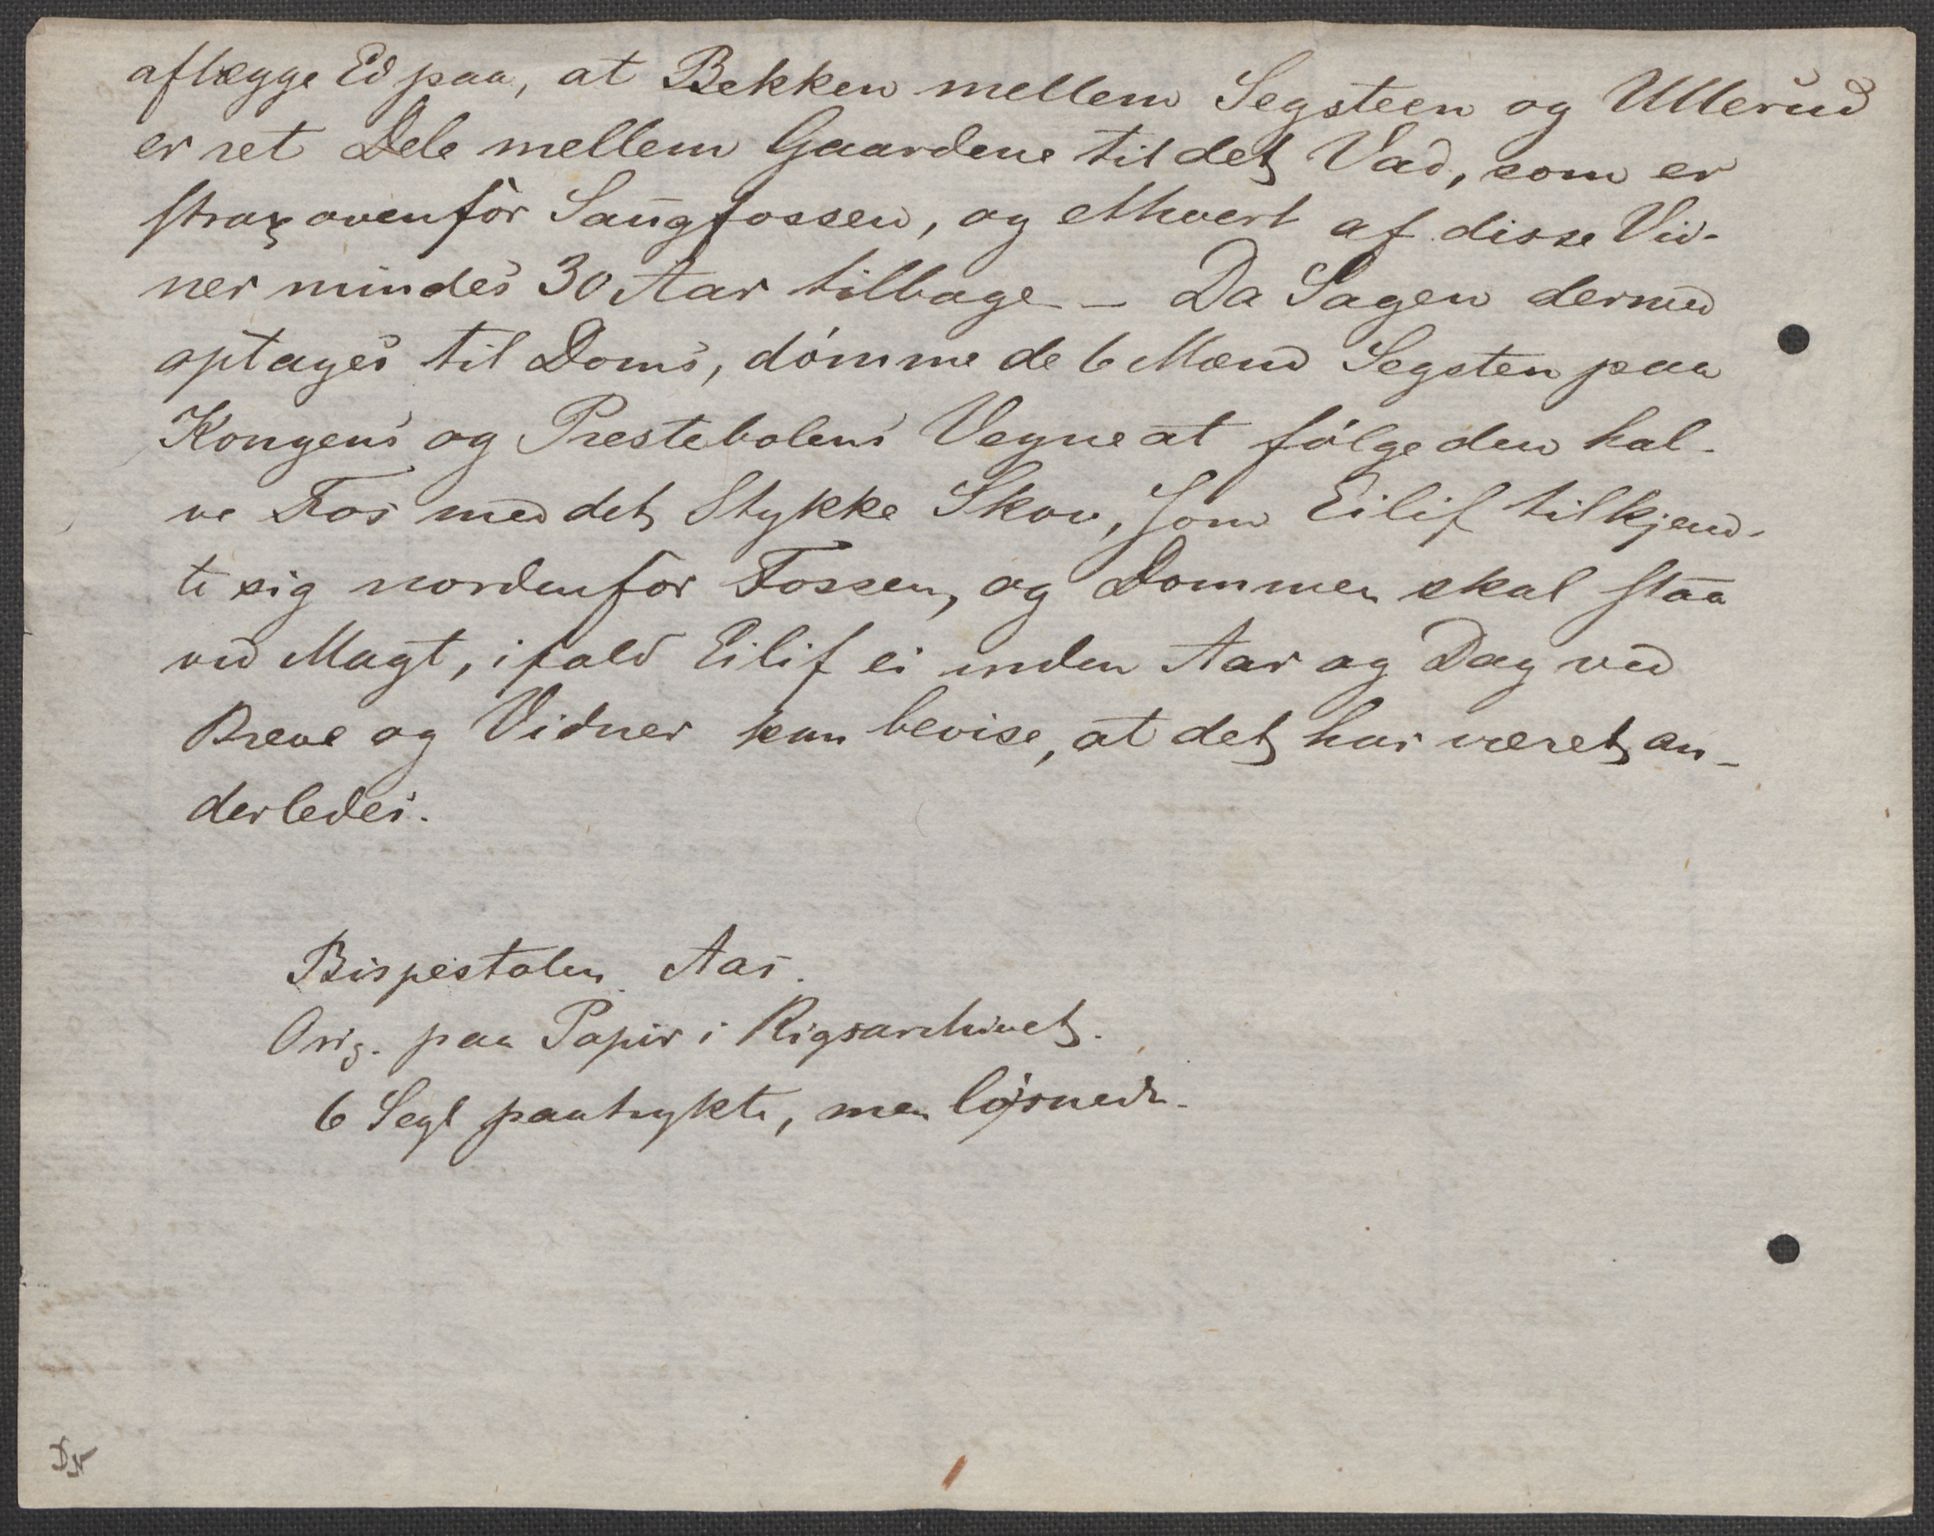 aflægge Ed paa, at Bekken mellem Segsteen og Ullerud
er ret Dele mellem Gaardene til det Vad, som er
strax ovenfor Saugfossen, og ethvert af disse Vid-
ner mindes 30 Aar tilbage – Da Sagen dermed
optages til Doms, dømme de 6 Mænd Segsten paa
Kongens og Prestebolens Vegne at følge den hal-
ve Fos med det Stykke Skov, som Eilif tilkjend-
te sig nordenfor Fossen, og Dommen skal staa
ved Magt, ifald Eilif ei inden Aar og Dag ved
Breve og Vidner kan bevise, at det har været an-
derledes.
Bispestolen Aas.
Orig. paa Papir i Rigsarchivet.
6 Segl paatrykte, men løsnede.
DN